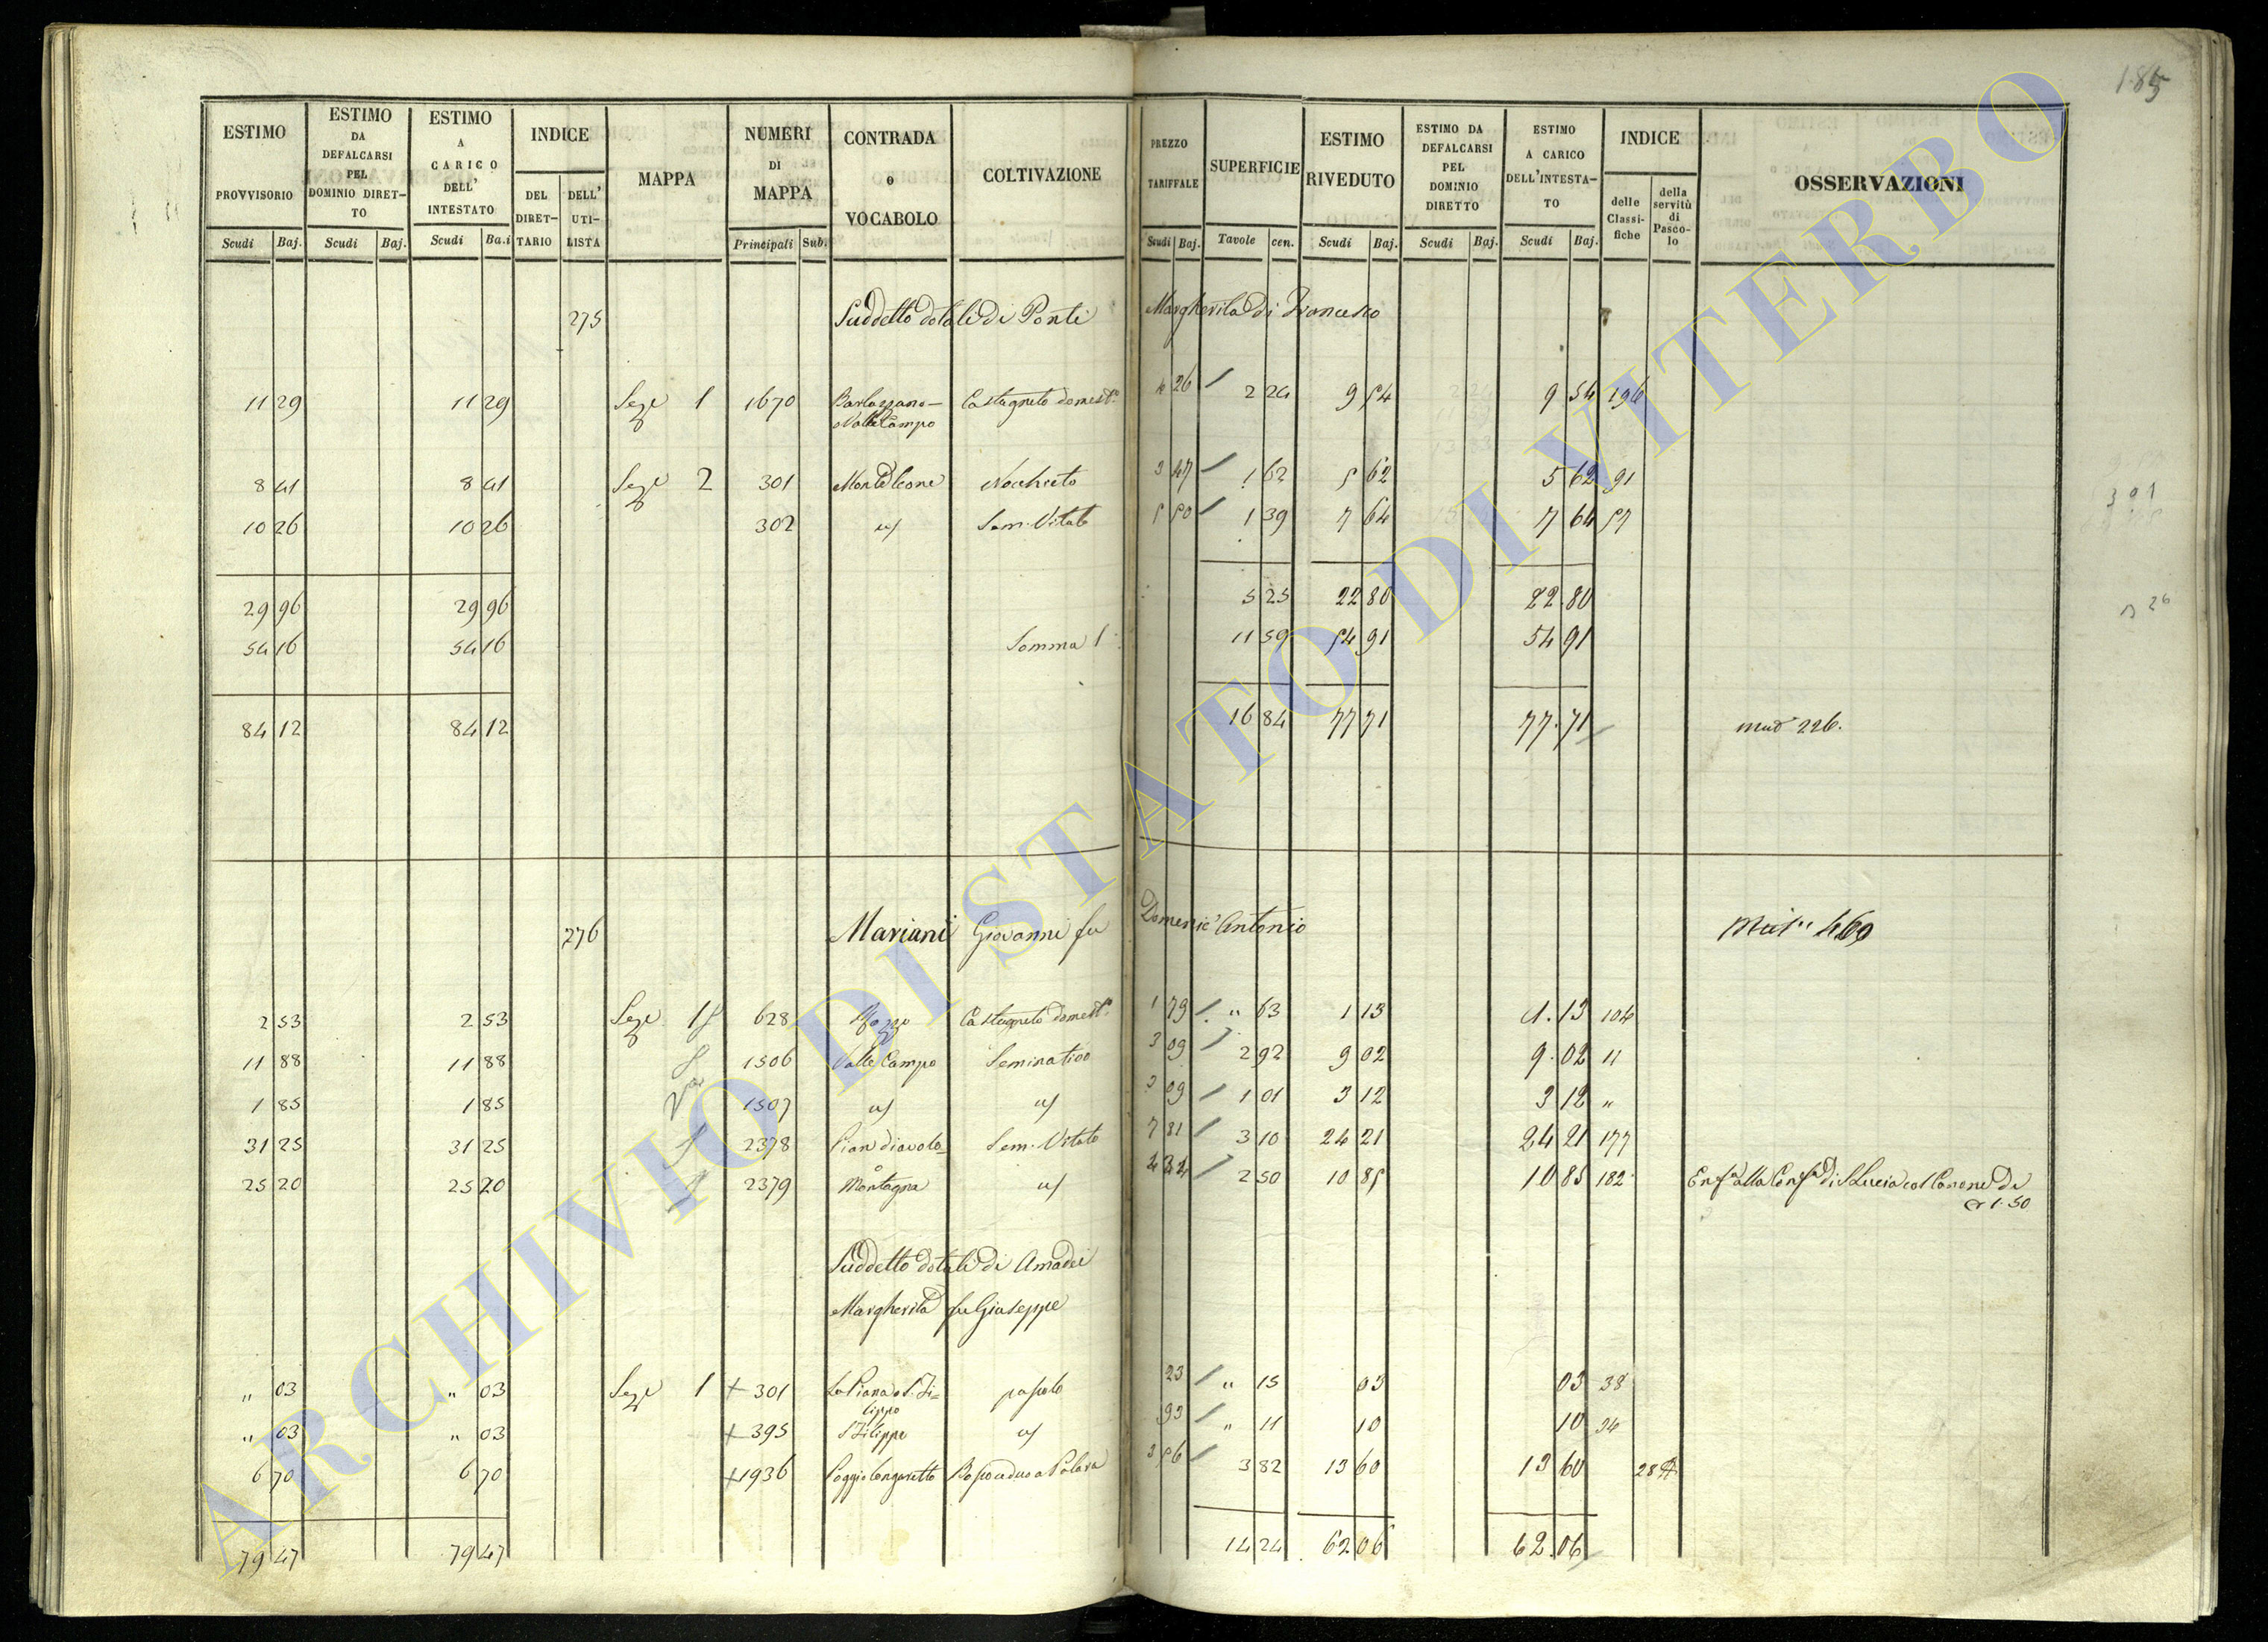 185
ESTIMO PROVVISORIO
ESTIMO DA DEFALCARSI PEL DOMINIO DIRETTO
ESTIMO A CARICO DELL' INTESTATO
INDICE
DEL DIRETTARIO
DELL' UTILISTA
MAPPA
NUMERI DI MAPPA
CONTRADA o VOCABOLO
COLTIVAZIONE
PREZZO TARIFFALE
SUPERFICIE
ESTIMO RIVEDUTO
ESTIMO DA DEFALCARSI PEL DOMINIO DIRETTO
ESTIMO A CARICO DELL'INTESTATO
INDICE
delle Classifiche
della servitù di Pascolo
OSSERVAZIONI
Scudi Baj. Scudi Baj. Scudi Ba.i Principali Sub. Scudi Baj. Tavole cen. Scudi Baj. Scudi Baj. Scudi Baj.
275 Suddetto dotale di Ponti Margherita di Francesco
11 29 11 29 Seze 1 1670 Barlozzano Castagneto domest.o 4 26 2 24 9 54 9 54 196
o Valle Campo
8 41 8 41 Seze 2 301 Monte Leone Nocchieto 3 47 1 62 5 62 5 62 91
10 26 10 26 302 " Sem. Vitato 5 50 1 39 7 64 7 64 57
29 96 29 96 5 25 22 80 22.80
54 16 54 16 Somma 1 11 59 54 91 54 91
84 12 84 12 16 84 77 71 77.71 mud 226.
276 Mariani Giovanni fu Domenic' Antonio 460
2 53 2 53 Seze 1 628 Pozzo Castagneto domest.o 1 79 " 63 1 13 1.13 104
11 88 11 88 1506 Valle Campo Seminativo 3 09 2 92 9 02 9.02 11
1 85 1 85 1507 " " 3 09 1 01 3 12 3 12 "
31 25 31 25 2378 Pian diavolo Sem. Vitato 7 81 3 10 24 21 24 21 177
25 20 25 20 2379 Montagna " 4 34 2 50 10 85 10 85 182 Enf.a alla Conf.a di S Lucia col Canone di
1.50
Suddetto dotale di Amadei
Margherita fu Giuseppe
" 03 " 03 Seze 1 + 301 La Piana o S. Fi= pascolo 23 " 15 03 03 38
lippo
" 03 " 03 + 395 S Filippo " 93 " 11 10 10 34
6 70 6 70 + 1936 Poggio Longaretto Bosco ceduo a Palara 3 56 3 82 13 60 13 60 28
79 47 79 47 14 24 62 06 62.06
ARCHIVIO DI STATO DI VITERBO